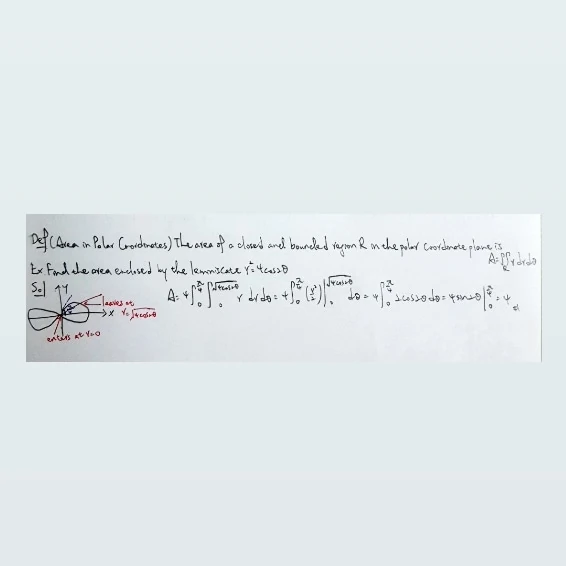 Def (Area in Polar Coordinates) The area of a closed and bounded region R in the polar coordinate plane is
A = ∬_R r dr dθ
Ex Find the area enclosed by the lemniscate r² = 4cos2θ
Sol
A = 4∫_0^{π/4} ∫_0^{√4cos2θ} r dr dθ = 4∫_0^{π/4} (r²/2)|_0^{√4cos2θ} dθ = 4∫_0^{π/4} 2cos2θ dθ = 4sin2θ|_0^{π/4} = 4
Y
leaves at
r = √4cos2θ
X
enters at r=0